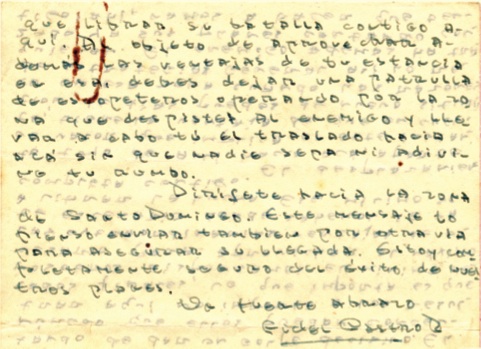 que librar su batalla contigo a-
quí. Al objeto de aprovechar a-
demás las ventajas de tu estancia
en esa, debes dejar una patrulla
de escopeteros operando por la zo-
na que despiste al enemigo y lle-
var a cabo tú el traslado hacia
acá sin que nadie sepa ni adivi-
ne tu rumbo.
Dirígete hacia la zona
de Santo Domingo. Este mensaje lo
pienso enviar también por otra vía
para asegurar su llegada. Estoy com-
pletamente seguro del éxito de nues-
tros planes.
Un fuerte abrazo
Fidel Castro R